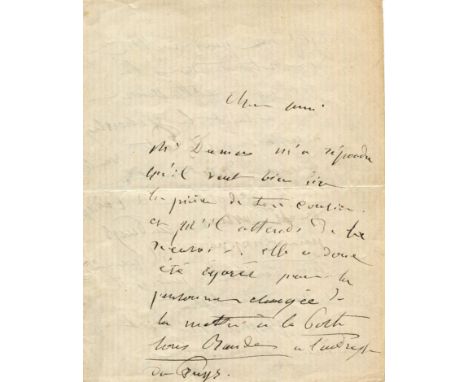 cher ami
Mr Dumas m'a répondu
qu'il veut bien lire
la pièce de ton cousin
et qu'il attends de la
recevoir. elle a donc
été égarée par la
personne chargée de
la mettre à la Poste
sous Bande à l'adresse
du Puys.